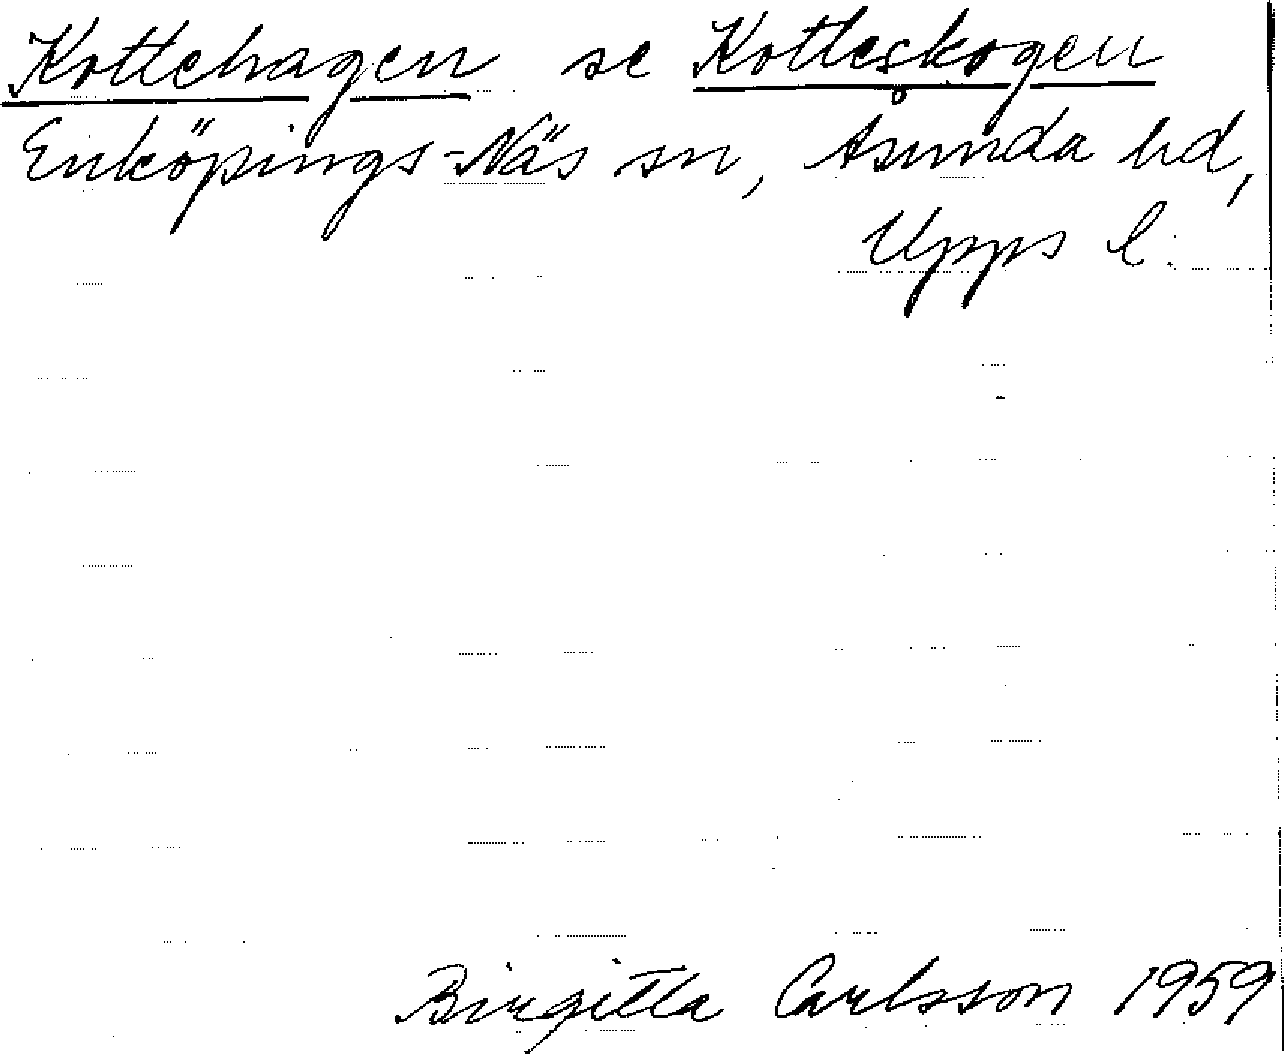 Kottehagen se Kotteskogen
Enköpings-Näs sn, Åsunda hd,
Upps l.
Birgitta Carlsson 1959